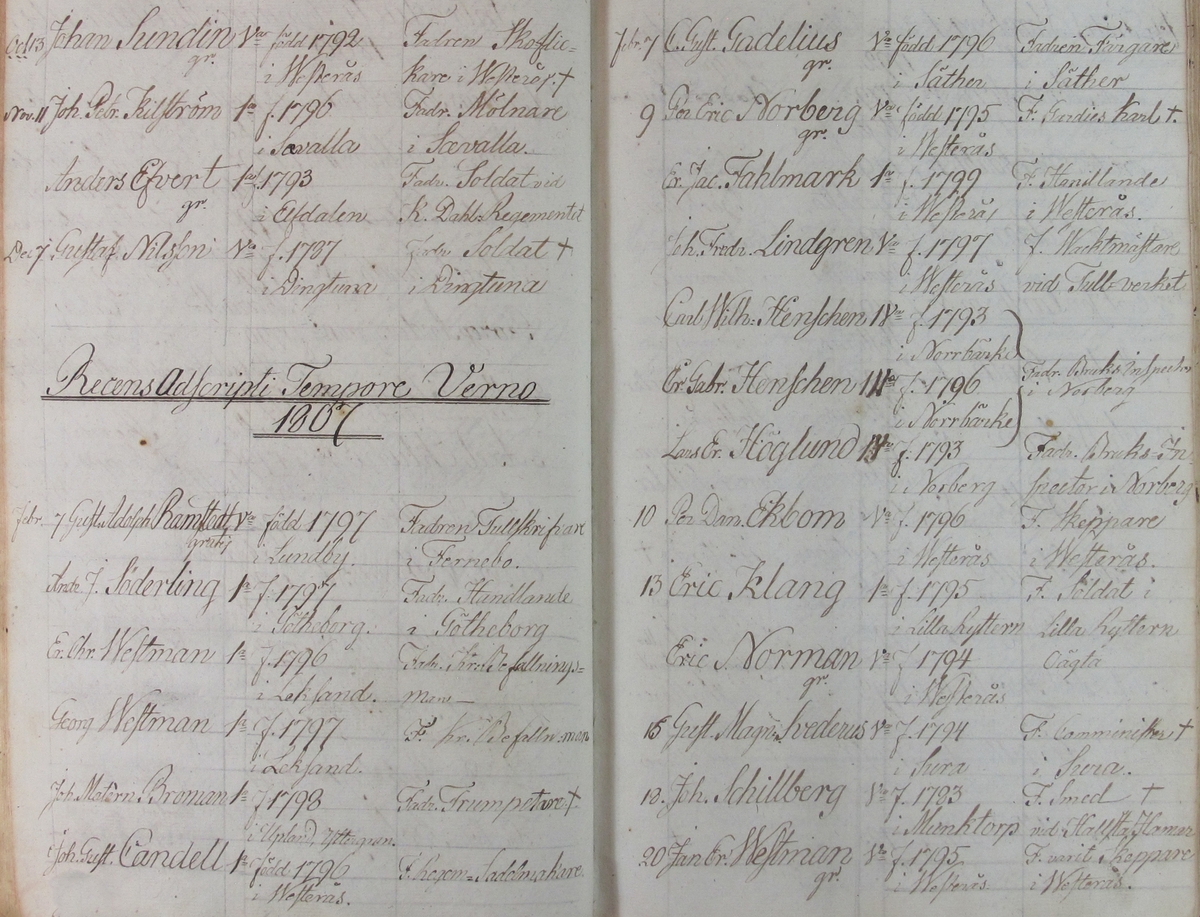 Oct 13 Johan Sundin Va född 1792 Fadren Skoflic-
gr. i Westerås kare i Westerås. †
Nov. 11 Joh. Petr. Kilström 1a f. 1796 Fadr. Mölnare
i Sævalla i Sævalla.
Anders Efvert 1a f. 1793 Fadr. Soldat vid
gr. i Elfdalen K. Dahl-Regementet
Dec 7 Gustaf Nilsson Va f. 1787 Fadr. Soldat †
i Dingtuna i Dingtuna
Recens Adscripti Tempore Verno
1807
Febr. 7 Gust. Adolph Ramstedt Va född 1797 Fadren Tullskrifvare
gratis i Lundby. i Fernebo.
Andr. J. Söderling 1a f. 1797 Fadr. Handlande
i Götheborg. i Götheborg
Er. Chr. Westman 1a f. 1796 Fadr. Befallnings-
i Leksand. man
Georg Westman 1a f. 1797 F. kr. Befalln.man
i Leksand.
Joh. Matern. Broman 1a f. 1798 Fadr. Trumpetare †
i Upland,
Joh. Gust. Candell 1a född 1796 F. Sadelmakare
i Westerås.
Febr. 7 C. Gust. Gadelius Va född 1796 Fadren Färgare
gr. i Säther i Säther
9 Per Eric Norberg Va född 1795 F. Gardies karl †.
gr. i Westerås
Er. Jac. Fahlmark 1a f. 1799 F. Handlande
i Westerås i Westerås.
Joh. Fredr. Lindgren Va f. 1797 F. Wacktmästare
i Westerås vid Tull-verket
Carl Wilh. Henschen IVa f. 1793
i Norrbärke
Er. Gabr. Henschen IIIa f. 1796 Fadr. Bruks Inspector
i Norrbärke i Norberg
Lars Er. Höglund f. 1793 Fadr. Bruks-In
i Norberg spector i Norberg
10 Per Dan. Ekbom Va f. 1796 F. Skeppare
i Westerås i Westerås.
13 Eric Klang 1a f. 1795 F. Soldat i
i Lilla Ryttern Lilla Ryttern
Eric Norman Va f. 1794 oägta
gr. i Westerås
15 Gust. Magn. Svederus Va f. 1794 F. Comminister †
i Sura i Sura.
18. Joh. Schillberg Va f. 1793 F. Smed †
i Munktorp vid Hallsta Hamar
20 Jan Er. Westman Va f. 1795 F. varit Skeppare
gr. i Westerås i Westerås.